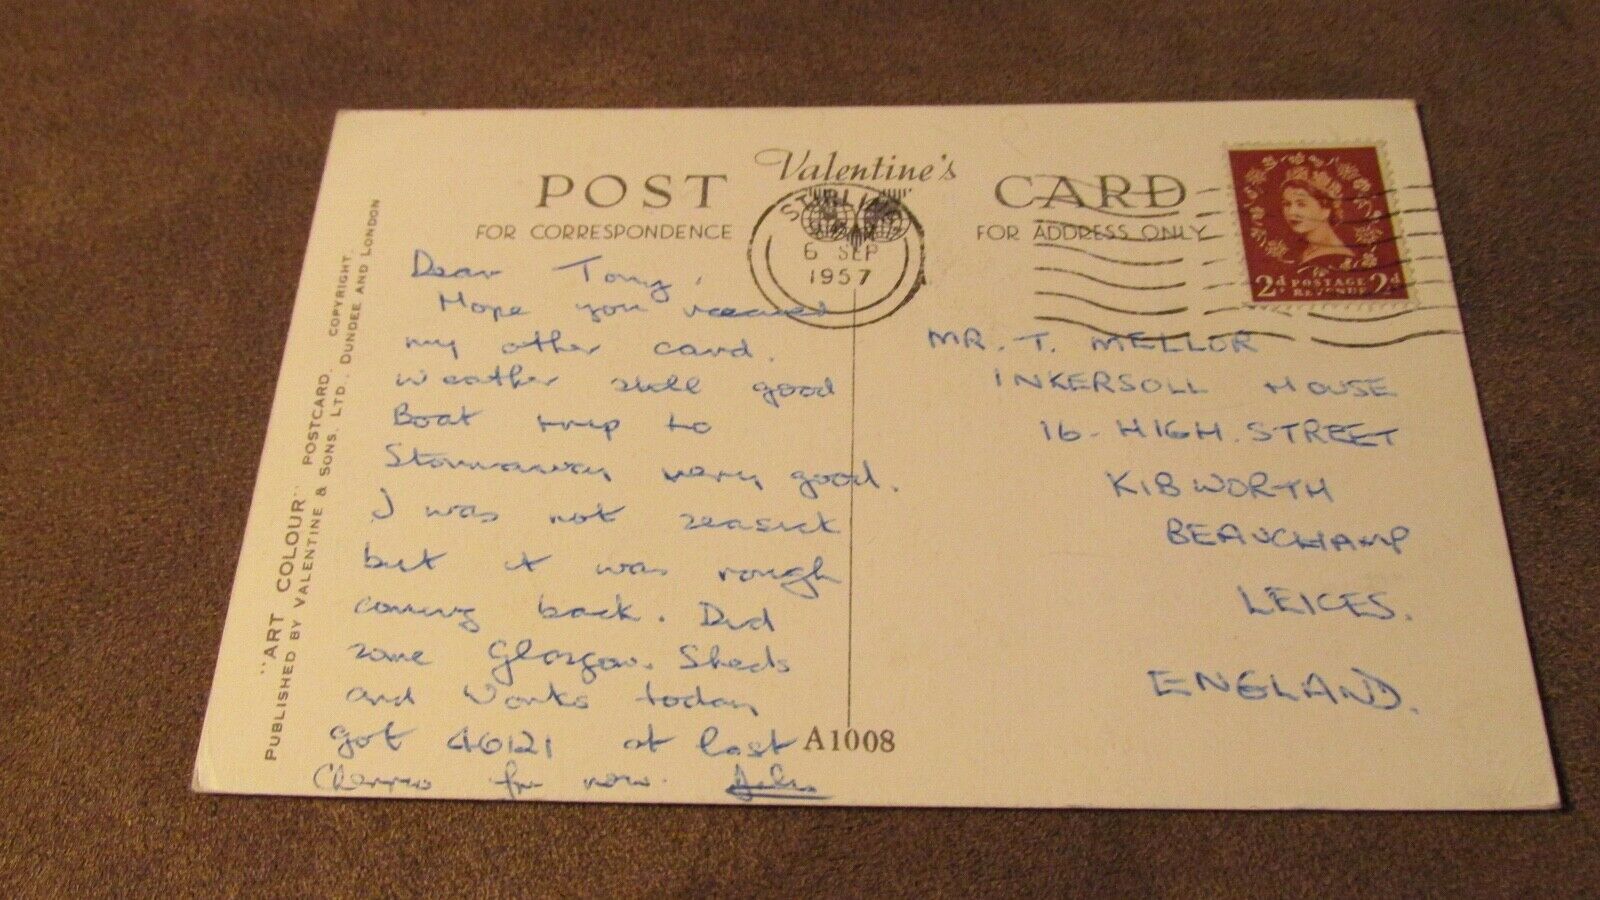 Valentine's
POST CARD
FOR CORRESPONDENCE
FOR ADDRESS ONLY
STIRLING
6 SEP
1957
2d POSTAGE REVENUE 2d
Dear Tony,
Hope you received
my other card.
Weather still good
Boat trip to
Stornaway very good.
I was not seasick
but it was rough
coming back. Did
some Glasgow. Sheds
and Works today
got 46121 at last
Cheerio for now. John
MR. T. MELLOR
INKERSOLL HOUSE
16 - HIGH. STREET
KIBWORTH
BEAUCHAMP
LEICES.
ENGLAND.
A1008
"ART COLOUR" POSTCARD. COPYRIGHT.
PUBLISHED BY VALENTINE & SONS. LTD., DUNDEE AND LONDON